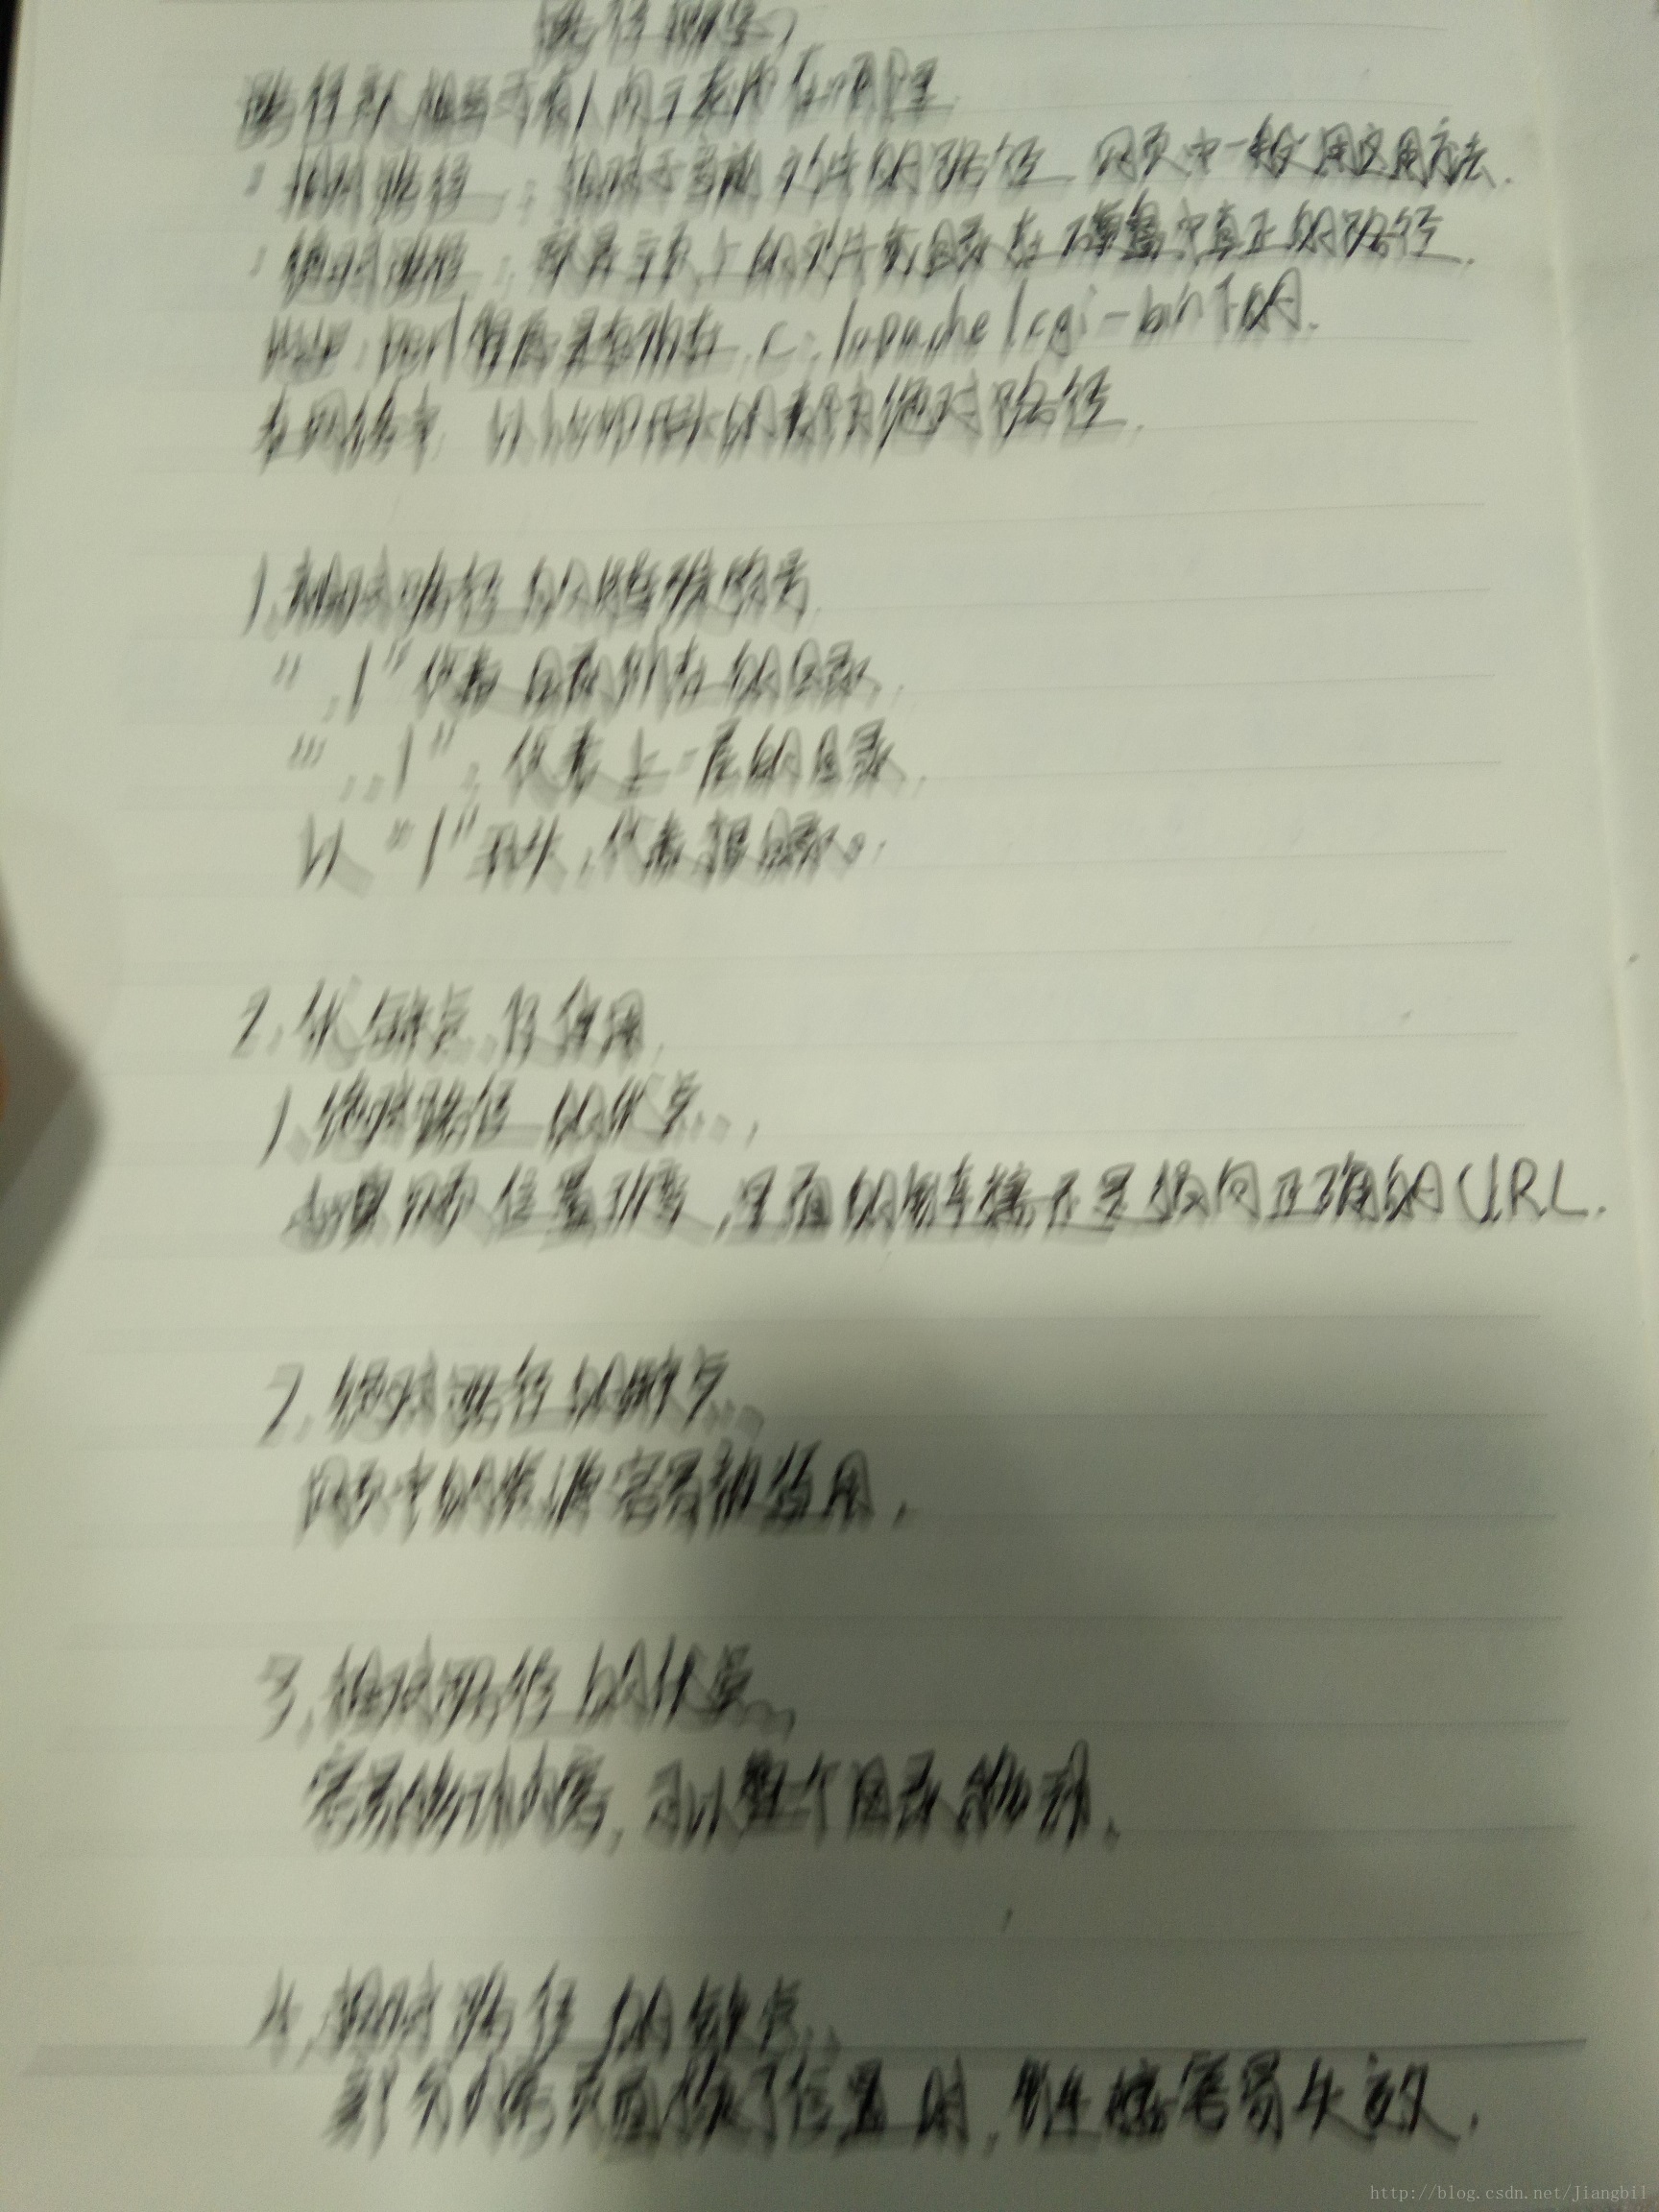 相对路径：相对于当前文件的路径 网页中一般用这用方法.
绝对路径：主页上的文件或目录在硬盘中真正的路径.
perl 程序是存放在 c:/apache/cgi-bin下的.
在网络中 以http开头的 绝对路径.
1.相对路径
"./"代表目前所在的目录.
"../"：代表上一层的目录.
以"/"开头,代表根目录.
2.优缺点
1.绝对路径的优点.
如果 位置改变,里面的链接还是指向正确的URL.
2.绝对路径的缺点
网页中的 容易被 用.
3.相对路径的优点
容易移动内容,可以整个目录移动.
4.相对路径的缺点
部分内容页面换了位置时,链接容易失效.
http://blog.csdn.net/Jiangbil